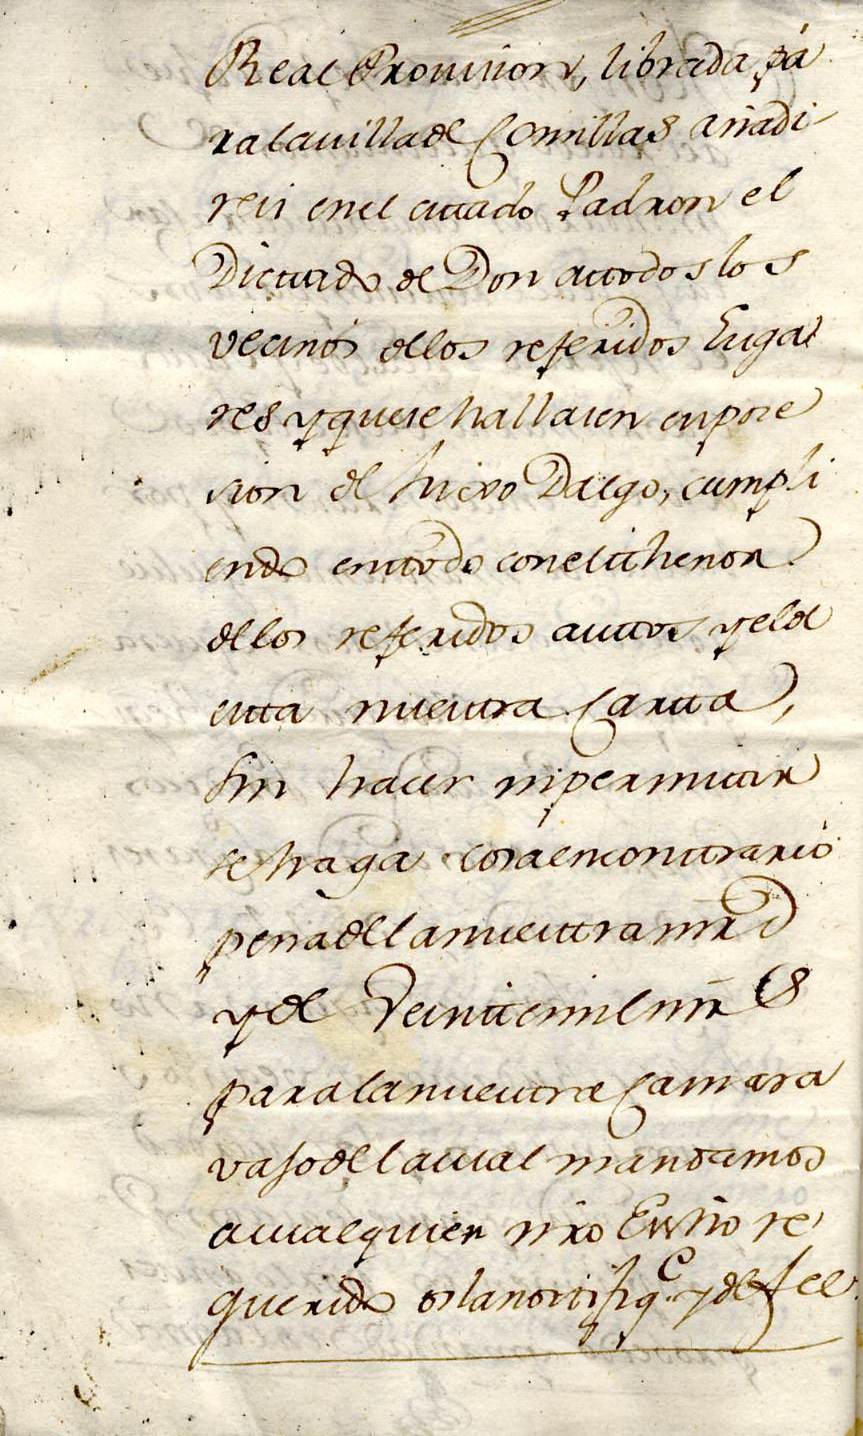 Real Provision, librada pa
ra la villa de Comillas añadi
reis en el cittado Padron el
Dicttado de Don a ttodos los
vecinos de los referidos Luga
res y que se hallasen en pose
sion de hixo Dalgo, cumpli
endo en ttodo con el tthenor
de los referidos auttos y el de
estta nuesttra Cartta,
sin hacer ni permittir
se haga cosa en conttrario
pena de la nuesttra mrd
y de Veintte mil mrs
para la nuesttra Camara
vajo de la cual mandamos
a cualquier nrô Essno re
querido os la nottifiqe y de fee